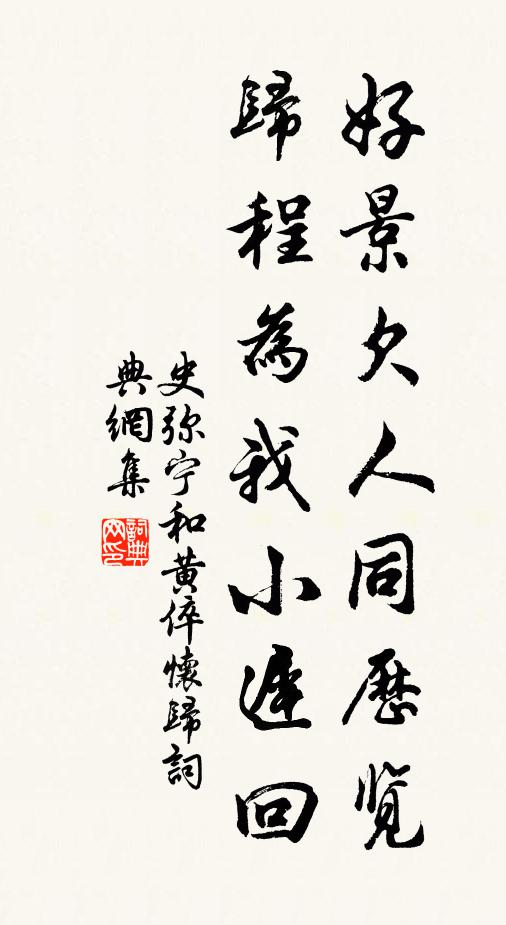 好景欠人同歷覽
歸程為我小遲回
史弥宁和黃倅懷歸詞
典網集
詞典网印